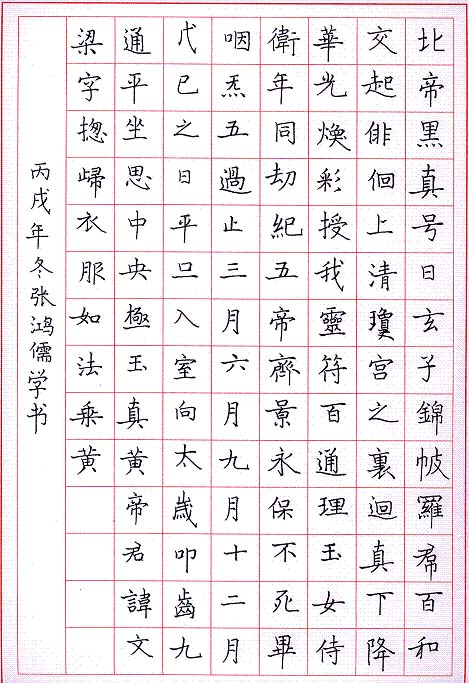 北帝黑真号曰玄子錦帔羅帬百和
交起俳佪上清瓊宮之裏迴真下降
華光煥彩授我靈符百通理玉女侍
衛年同劫紀五帝齊景永保不死畢
咽炁五過止三月六月九月十二月
戊己之日平旦入室向太歲叩齒九
通平坐思中央極玉真黃帝君諱文
梁字揔歸衣服如法乘黃
丙戌年冬张鸿儒学书